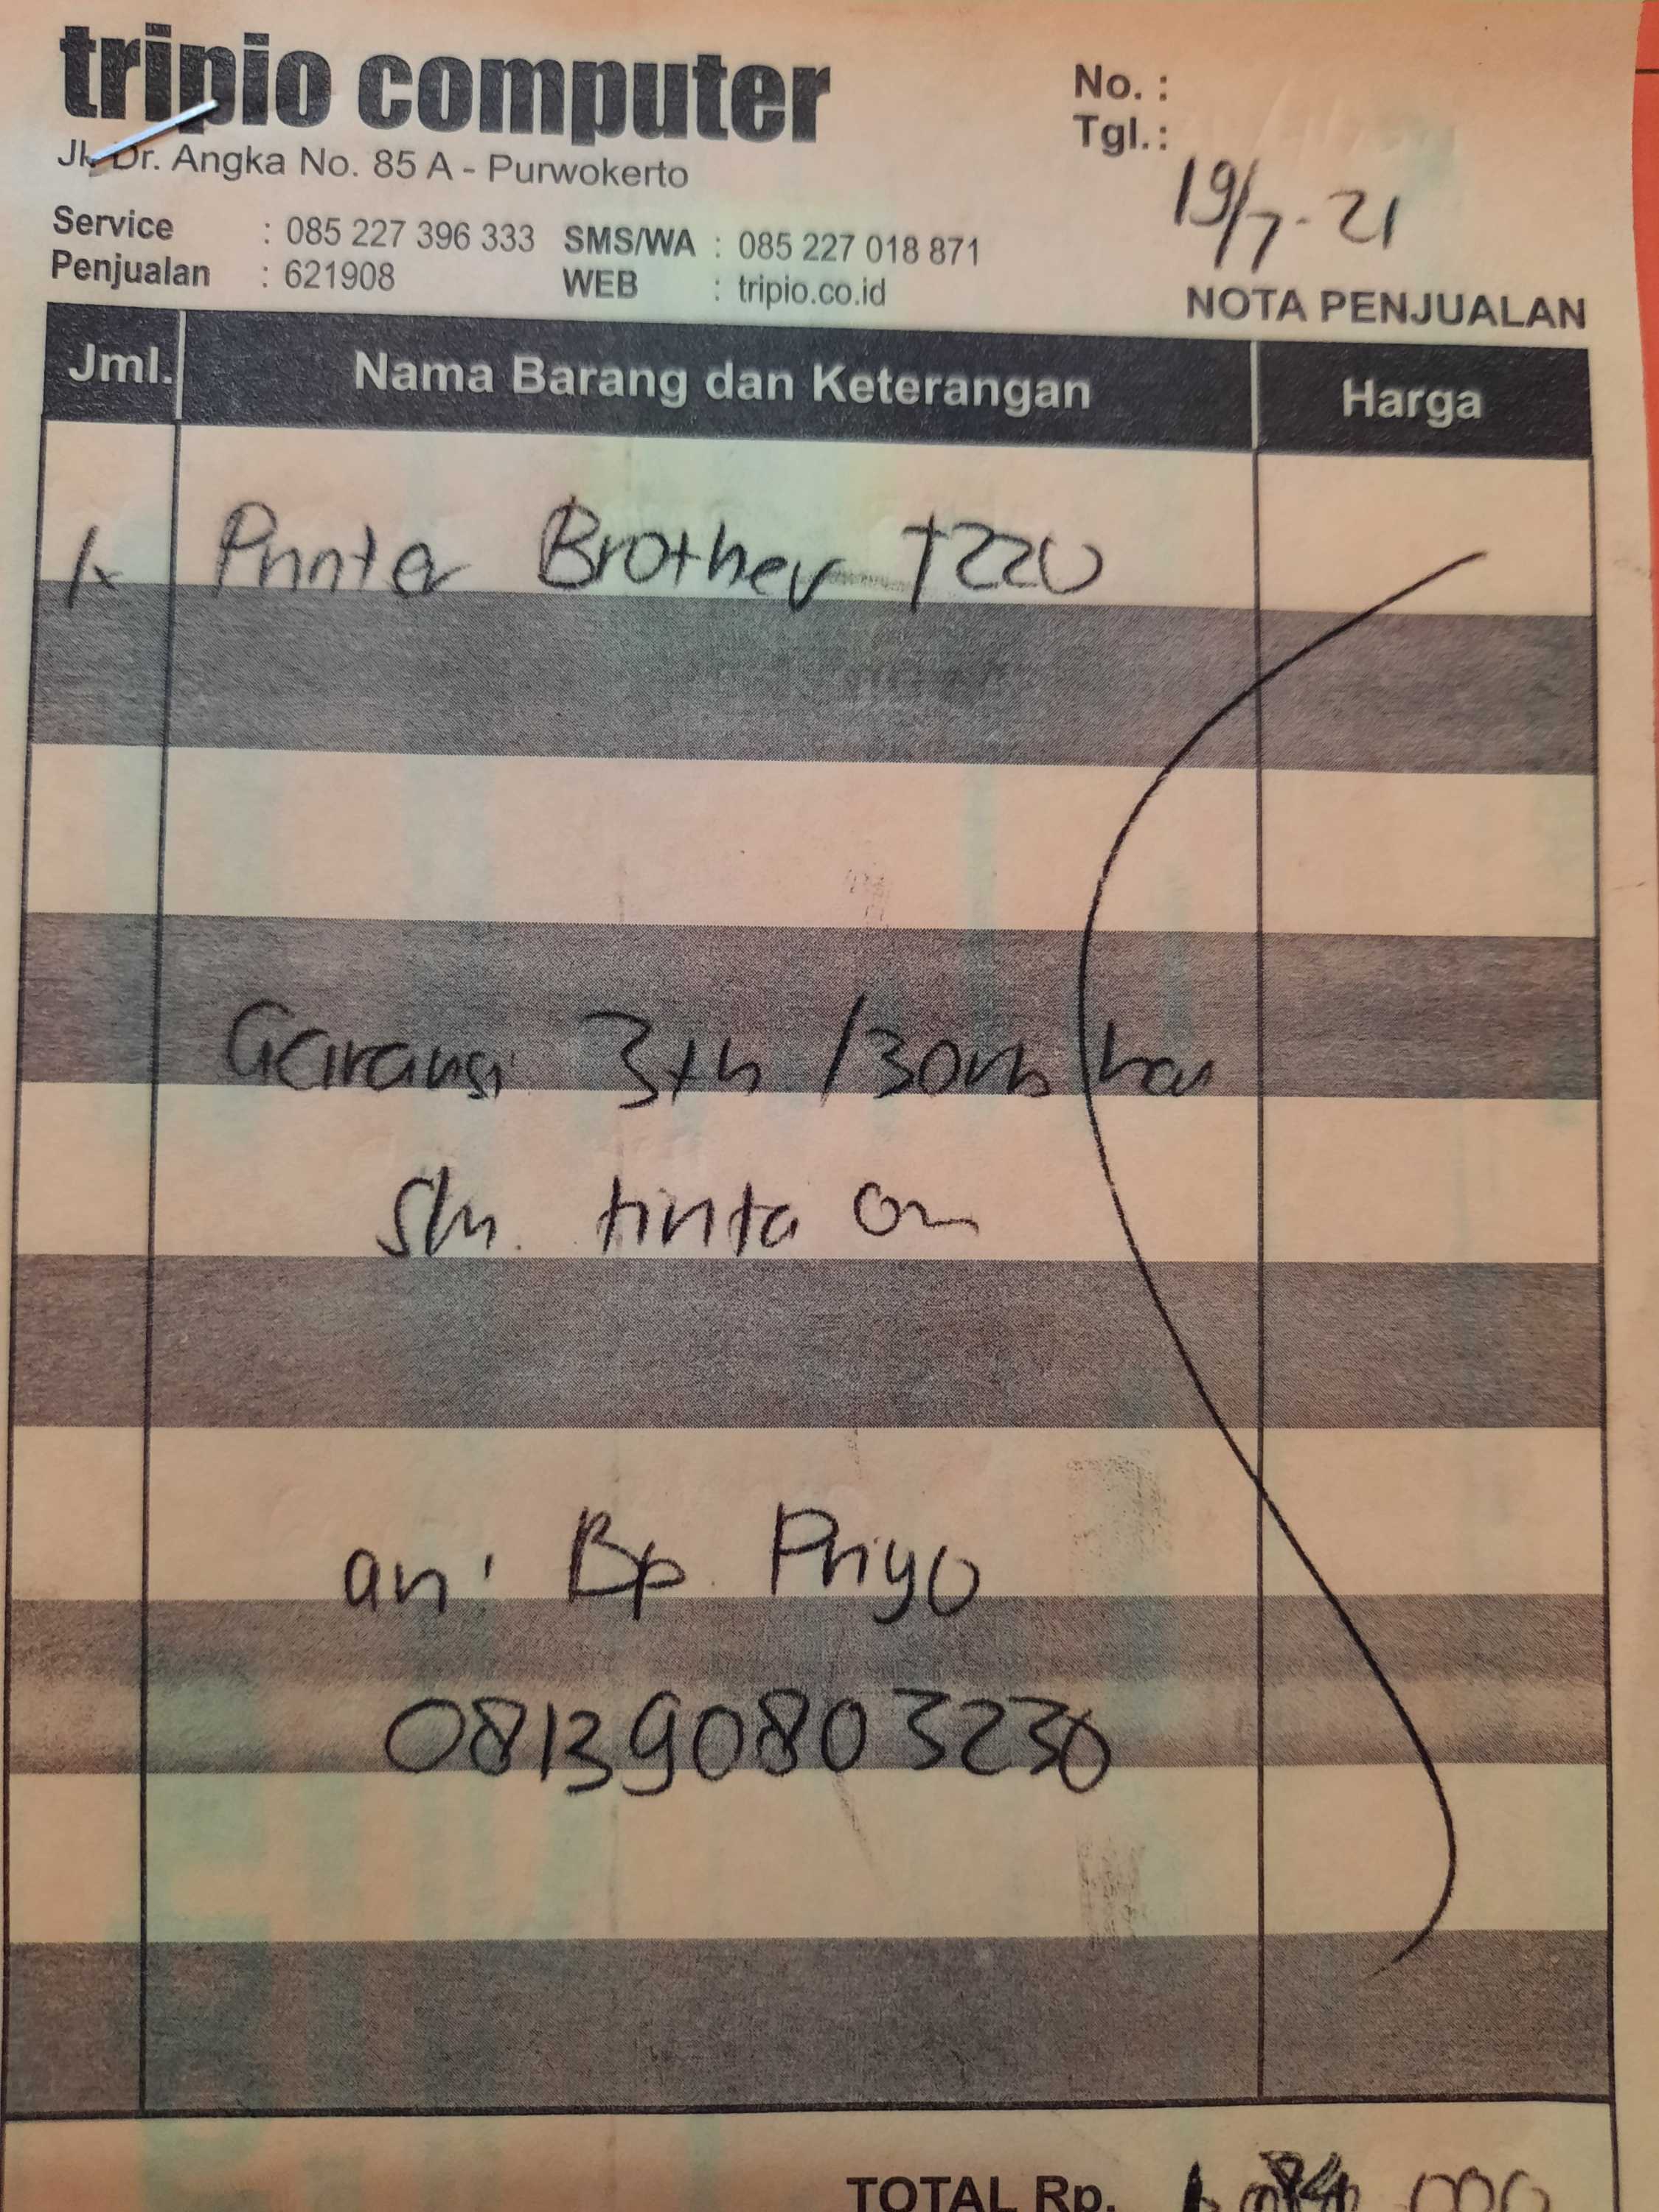 tripio computer
Jl. Dr. Angka No. 85 A - Purwokerto
No. :
Tgl. : 19/7-21
Service : 085 227 396 333 SMS/WA : 085 227 018 871
Penjualan : 621908 WEB : tripio.co.id
NOTA PENJUALAN
Jml. Nama Barang dan Keterangan Harga
1x Printer Brother T220
Garansi 3th /30rb
Slm. tinta ori
an: Bp. Priyo
TOTAL Rp.